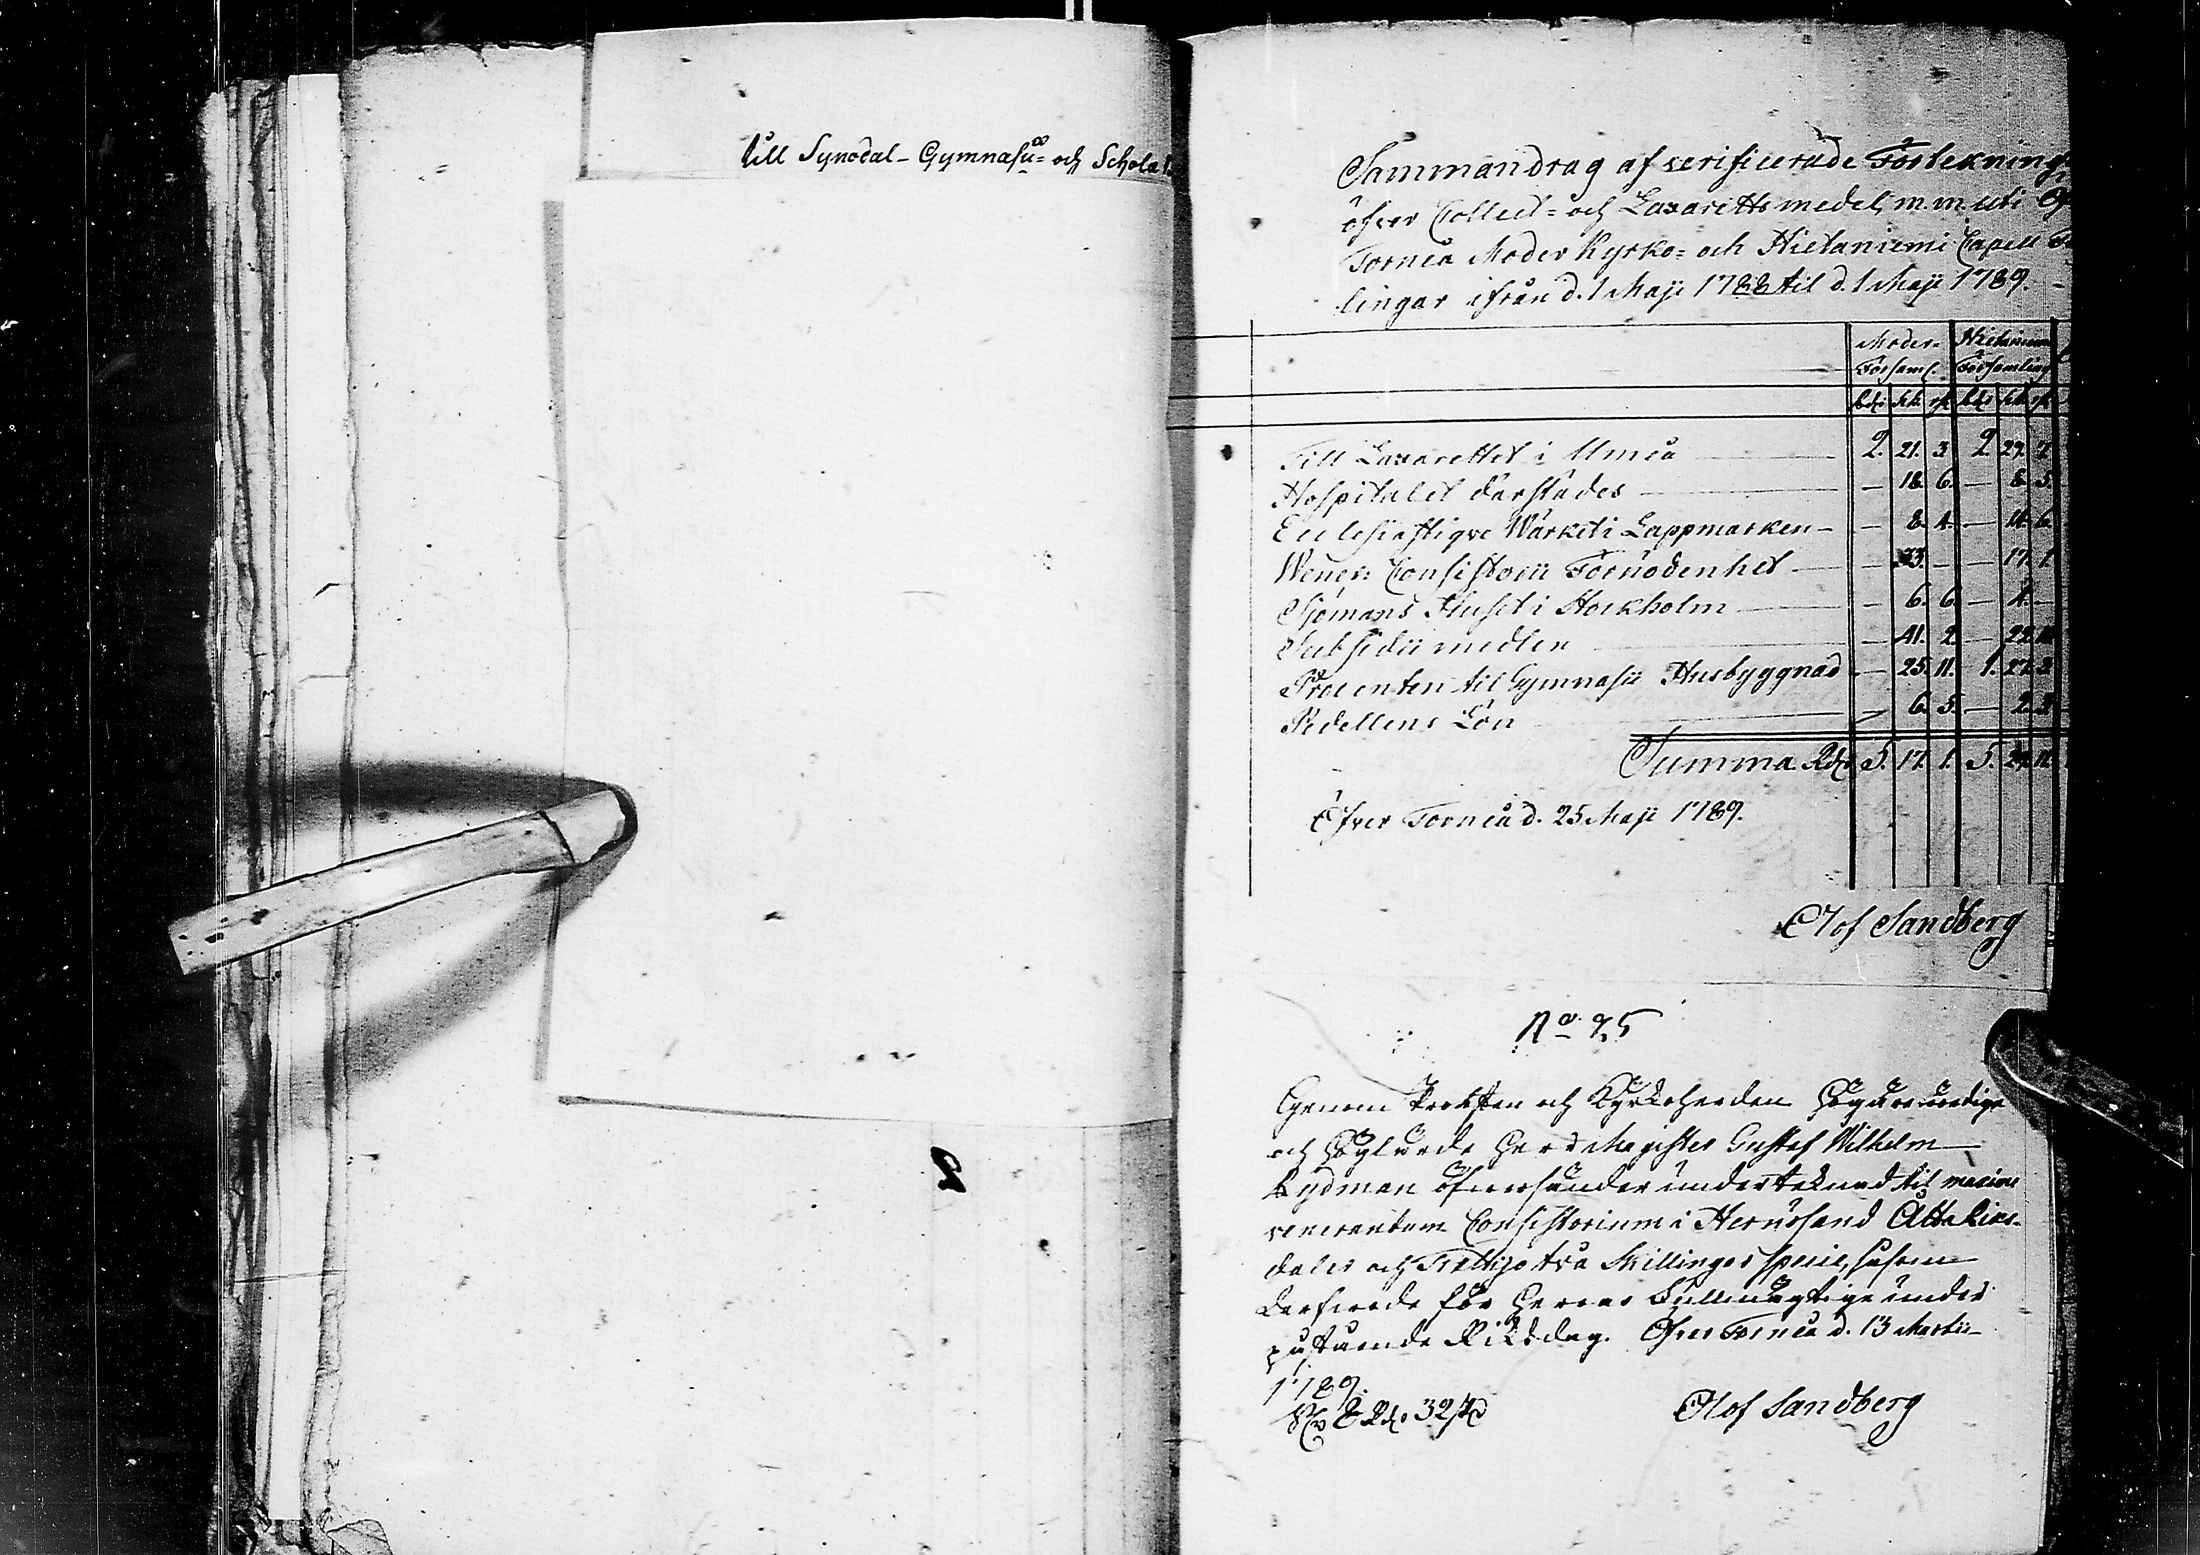 till Synodal- Gymnasii- och Schola
Sammandrag af verificerade Förtekning
öfver Collect- och Lazaretts medel, m.m. uti Öf
Torneå Moder Kyrko- och Hietaniemi Capell F
lingar ifrån d. 1 Maji 1788 til d. 1 Maji 1789.
Moder- Hietaniemi
Församl. Församling
Rdr sk. rst Rdr sk. rst
Till Lazarettet i Umeå 2. 21. 3. 2. 27. 7.
Hospitalet därstädes — 18. 6. — 8. 5.
Ecclesiastiqve Wärket i Lappmarken — 8. 4. — 14. 6.
Wener: Consistorii Förnödenhet — 33. — — 17. 1.
Sjömans Huset i Stockholm — 6. 6. — 4. —
Subsidii medlen — 41. 2. — 22. 11.
Procenten til Gymnasii Husbyggnad — 25. 11. 1. 27. 3.
Pedellens Lön — 6. 5. — 2. 3.
Summa Rdr 5. 17. 1. 5. 27. 11.
Öfver Torneå d. 25 Maji 1789.
Olof Sandberg
No 25
Genom Probsten och Kyrkoherden Högvörvördige
och Höglärde Herr Magister Gustaf Wilhelm
Rydman öfversänder undertecknad til maxime
venerandum Consistorium i Hernösand Åtta Riks-
daler och Trettijo två Skillingar specie, såsom
Darfvode för Herrar Fullmägtige under
påstående Riksdag. Öfver Torneå d. 13 Martii
1789.
8 Rdr 32 sk
Olof Sandberg